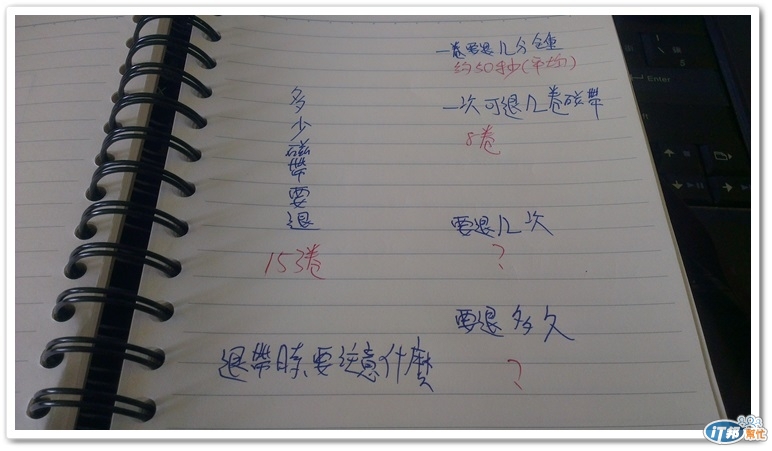 一卷要退几分鐘
約50秒(平均)
多少磁帶要退
一次可退几卷磁帶
8卷
153卷
要退几次
?
要退多久
?
退帶時、要注意什麼
iT邦幫忙
Enter